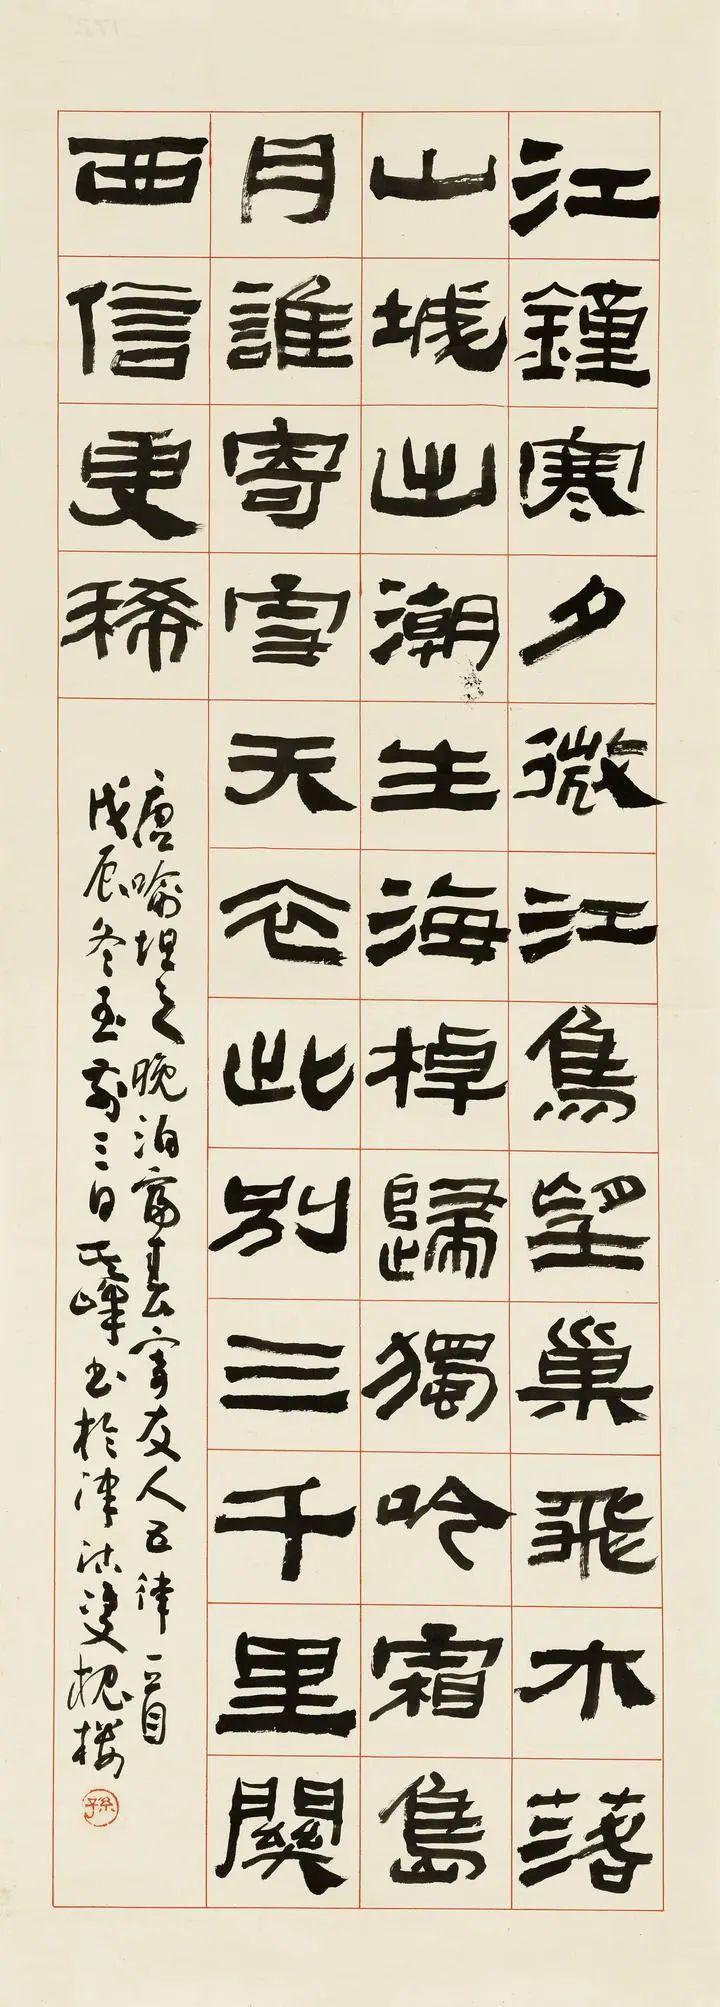 江鐘寒夕微江鳥望巢飛木落
山城出潮生海棹歸獨吟霜島
月誰寄雪天衣此別三千里關
西信更稀
唐喻坦之晚泊富春寄友人五律一首
戊辰冬至前三日其峰书於津沽雙槐樓
孫